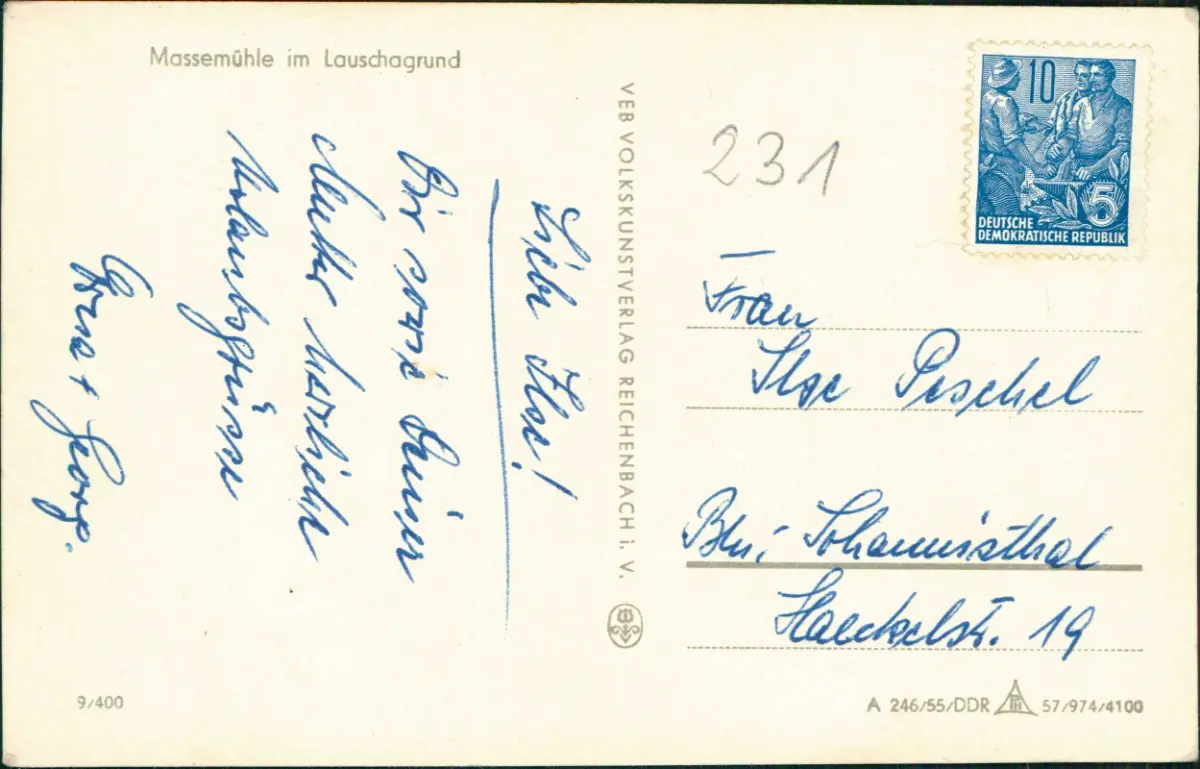 Massemühle im Lauschagrund
Liebe Ilse!
Dir sowie Deiner
Mutter herzliche
Urlaubsgrüsse
Erna + Georg.
VEB VOLKSKUNSTVERLAG REICHENBACH i. V.
231
10
5
DEUTSCHE
DEMOKRATISCHE REPUBLIK
Frau
Ilse Peschel
Bln. Johannisthal
Haeckelstr. 19
9/400
A 246/55/DDR
57/974/4100